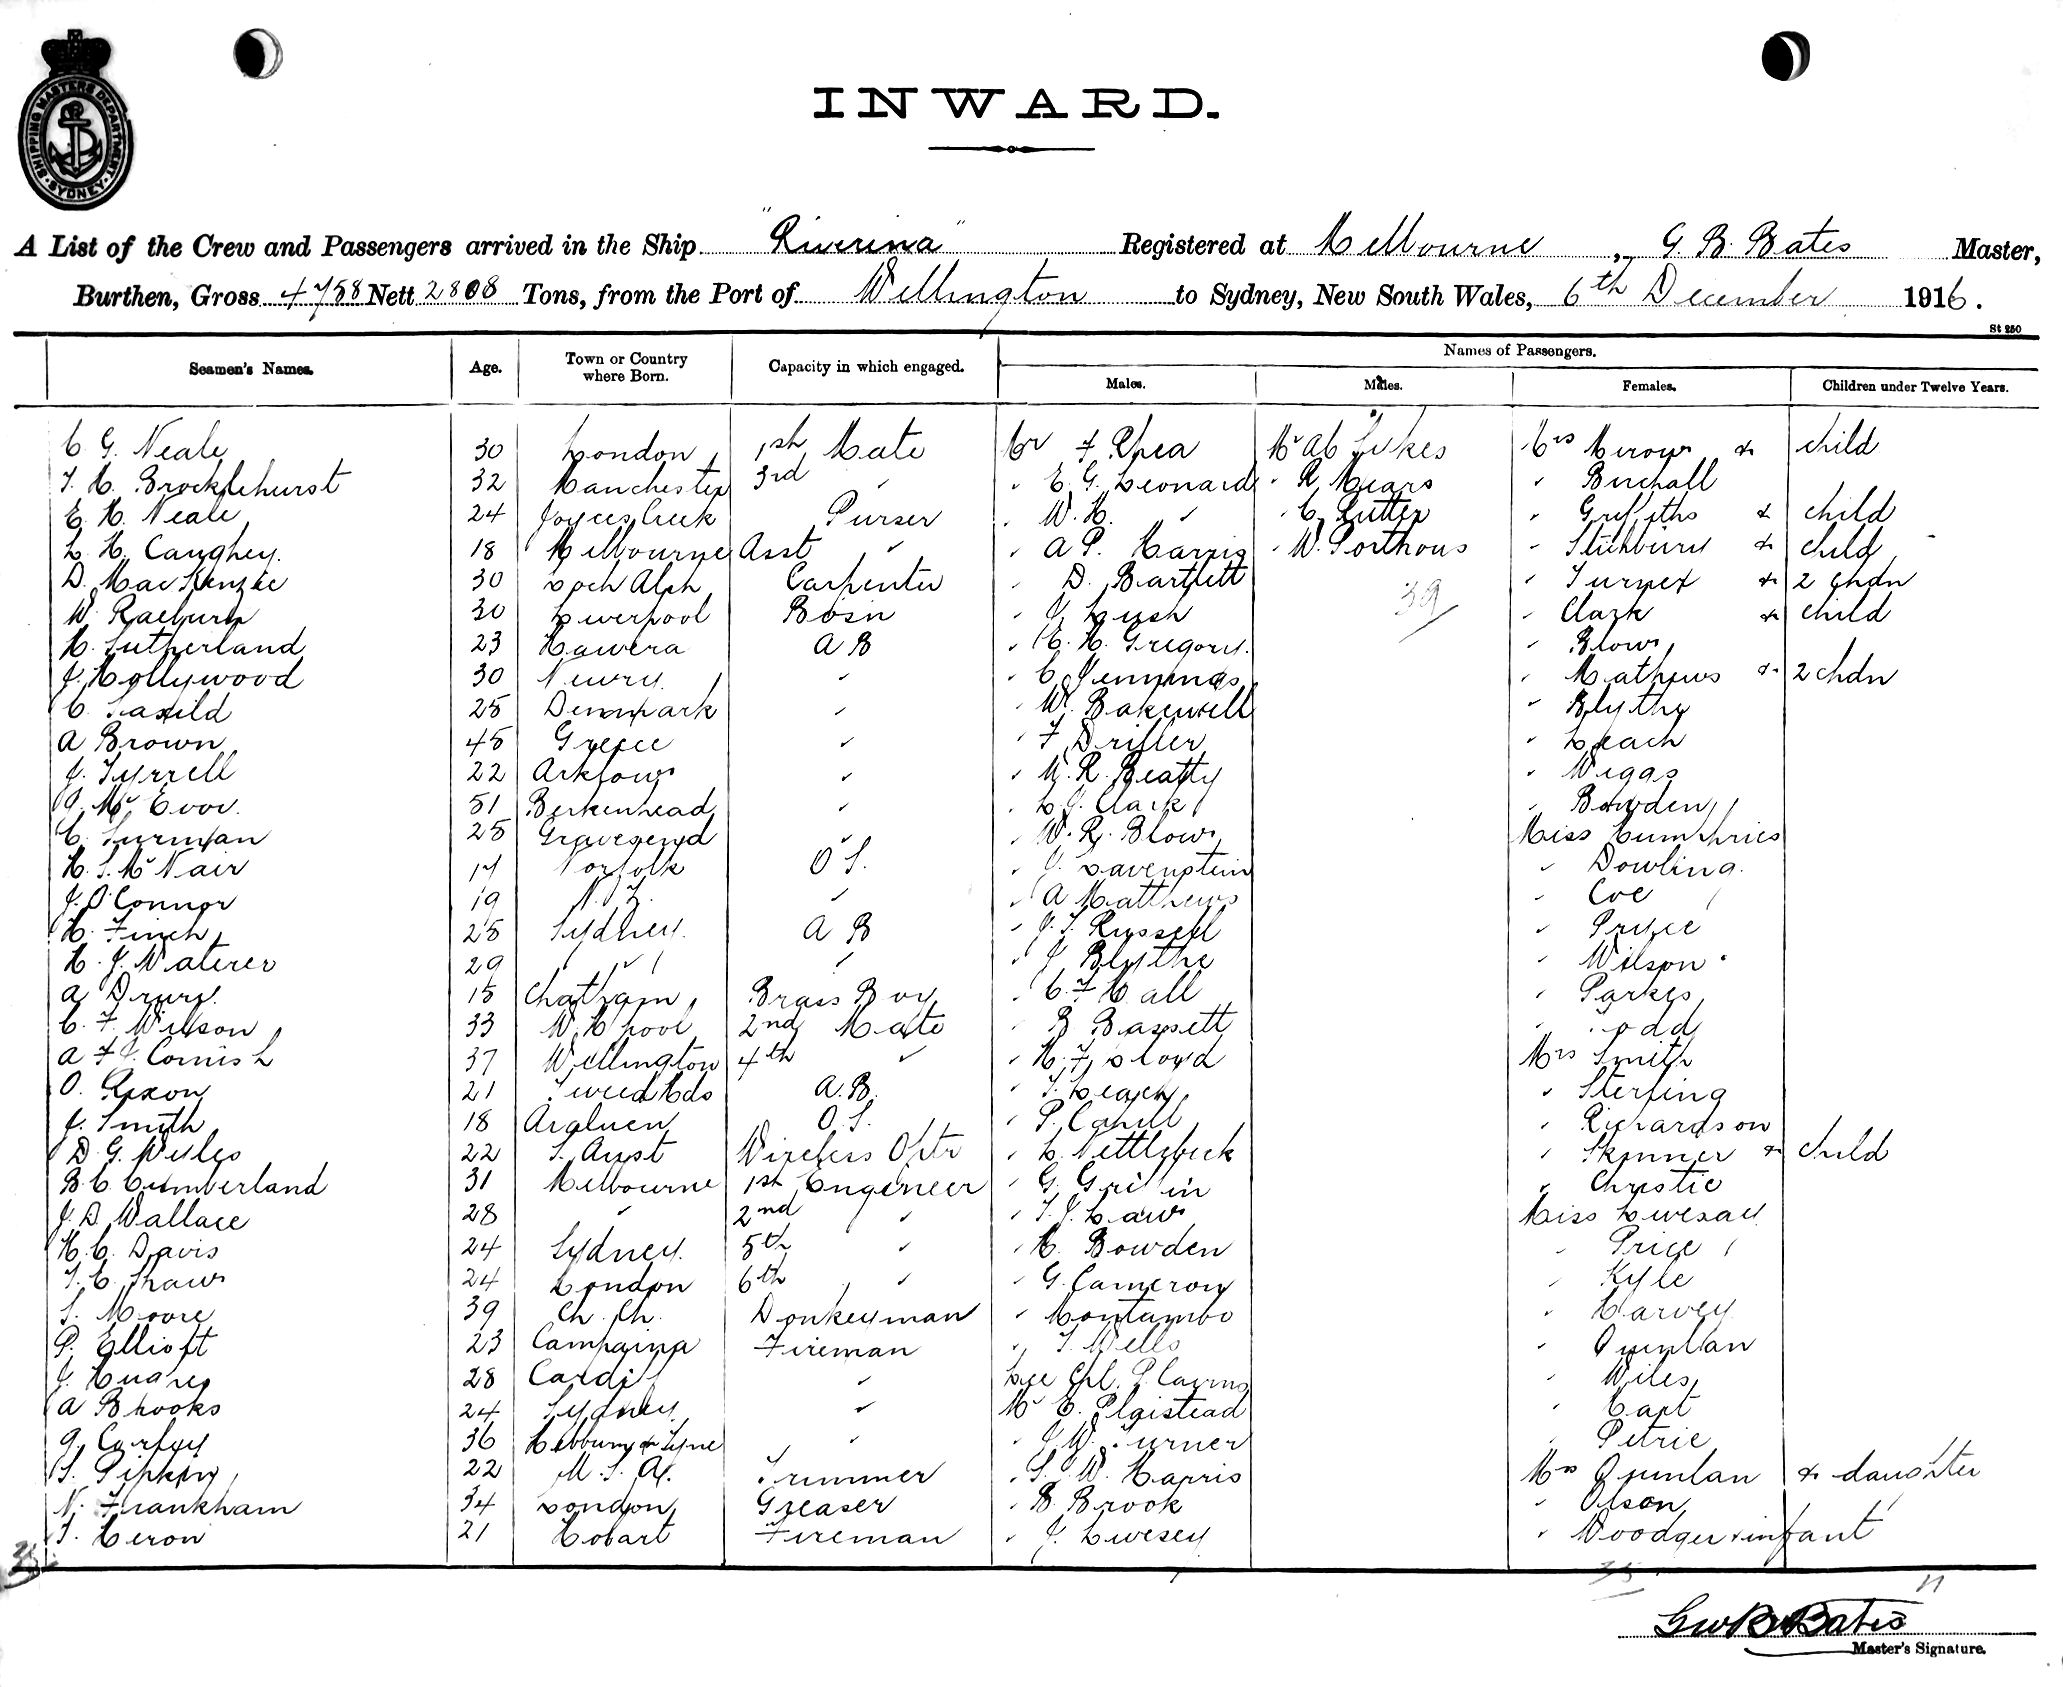 SHIPPING MASTERS DEPARTMENT
SYDNEY
INWARD.
A List of the Crew and Passengers arrived in the Ship "Riverina" Registered at Melbourne, G B. Bates Master,
Burthen, Gross 4758 Nett 2808 Tons, from the Port of Wellington to Sydney, New South Wales, 6th December 1916.
St 250
Seamen's Names. Age. Town or Country where Born. Capacity in which engaged. Names of Passengers.
Males. Males. Females. Children under Twelve Years.
C G. Neale 30 London 1st Mate Mr F Shea Mr Ab Sykes Mrs Merow & child
T. H. Brocklehurst 32 Manchester 3rd " " E. G. Leonard " R Mears " Birchall
E. H. Neale 24 Joyces Creek Purser " W. H. " " C. Rutter " Griffiths & child
L H. Caughey. 18 Melbourne Asst " " A P. Harris " W. Porthous " Stichbury & child
D. MacKenzie 30 Loch Alsh Carpenter " D. Bartlett 39 " Turner & 2 chdn
W. Raeburn 30 Liverpool Bosn " J. Lush " Clark & child
H. Sutherland 23 Hawera A B " C. H. Gregory. " Blow
J. Hollywood 30 Newry " " C. Jennings " Mathews & 2 chdn
C. 25 Denmark " " W. Bakewell " Blythe
A Brown 45 Greece " " F Driller " Leach
J. Tyrrell 22 Arklow " " W. R. Beatty " Wegas
J. McEvoy. 51 Berkenhead " " L. J. Clark " Bowden
C. Surman 25 Gravesend " " W. R. Blow Miss Humphries
H. S. McNair 17 Norfolk O S. " J. Lavenstein " Dowling.
J. O'Connor 19 N. Z. " " A Matthews " Coe
H. Finch 25 Sydney. A B " J. S. Russell " Pryce
H. J. Waterer 29 " " " J Blythe " Wilson
A Drury. 15 Chatham Brass Boy " C. F Hall " Parkes
C. F. Wilson 33 W. Hpool 2nd Mate " B Bassett " Todd
A F J. Cornish 37 Wellington 4th " " H. F. Lloyd Mrs Smith
O. Rixon 21 Tweed Hds A. B. " T. Leach " Sterling
J. Smith 18 Araluen O. S. " P. Cahill " Richardson
D. G. Wiles 22 S. Aust Wireless Optr " L. Nettlebeck " Skinner & child
B C Cumberland 31 Melbourne 1st Engineer " G. " Christie
J. D. Wallace 28 " 2nd " " T. J. Law Miss Livesay
H. C. Davis 24 Sydney. 5th " " H. Bowden " Price
T. C. Shaw 24 London 6th " " G. Cameron " Kyle
S. Moore 39 Ch. Ch. Donkeyman " Montambo " Harvey
P. Elliott 23 Fireman " T. Wells " Quinlan
J. Hughes 28 Cardiff " Lce Cpl. P. Cairns " Wiles
A Brooks 24 Sydney " Mr E. Plaistead " Capt
36 Hebburn on Tyne " " J. W. Turner " Petrie
S. 22 U. S. A. Trimmer " S. W. Harris Mrs Quinlan & daughter
N. Frankham 34 London Greaser " B. Brook " Olson
T. Heron 21 Hobart Fireman " J. Livesey " Woodger & infant
35 35 11
Geo B Bates
Master's Signature.